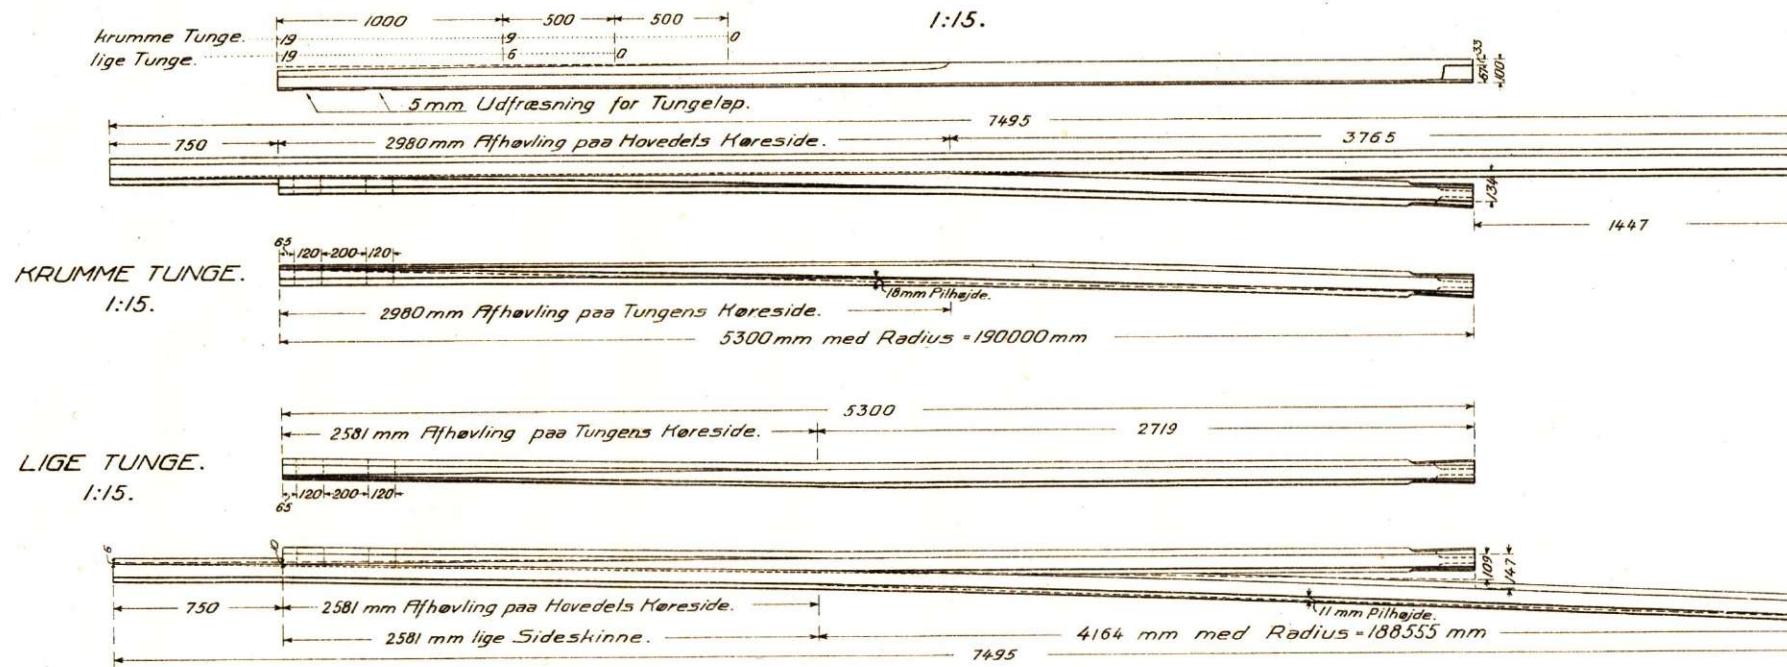 1000 500 500 1:15.
krumme Tunge. 19 9 0
lige Tunge. 19 6 0
33
67
100
5 mm Udfræsning for Tungelap.
7495
750 2980 mm Afhøvling paa Hovedels Køreside. 3765
134
1447
65 120 200 120
KRUMME TUNGE.
1:15.
18 mm Pilhøjde.
2980 mm Afhøvling paa Tungens Køreside.
5300 mm med Radius = 190000 mm
5300
2581 mm Afhøvling paa Tungens Køreside. 2719
LIGE TUNGE.
1:15.
120 200 120
65
6 0
109 147
750 2581 mm Afhøvling paa Hovedels Køreside. 11 mm Pilhøjde.
2581 mm lige Sideskinne. 4164 mm med Radius = 188555 mm
7495